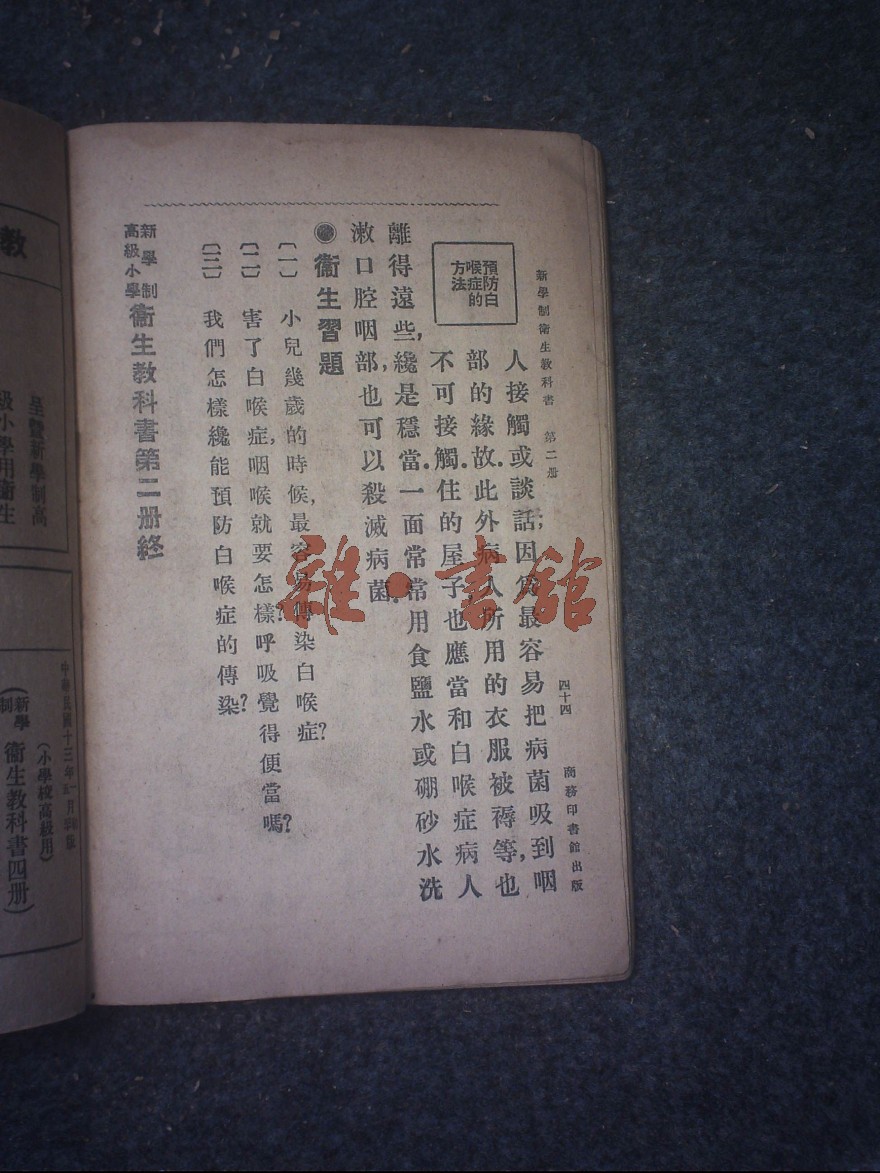 新學制衛生教科書 第二册
四十四
商務印書館出版
預防白
喉症的
方法
人接觸或談話;因爲最容易把病菌吸到咽
部的緣故.此外病人所用的衣服被褥等,也
不可接觸.住的屋子,也應當和白喉症病人
離得遠些,纔是穩當.一面常常用食鹽水或硼砂水洗
漱口腔咽部,也可以殺滅病菌.
◉衛生習題
〔一〕 小兒幾歲的時候,最容易傳染白喉症?
〔二〕 害了白喉症,咽喉就要怎樣?呼吸覺得便當嗎?
〔三〕 我們怎樣纔能預防白喉症的傳染?
新學制
高級小學
衛生教科書第二册終
雜·書館
教
呈暨新學制高
級小學用衛生
中華民國十三年一月
(小學校高級用)
(新學制
衛生教科書四册)